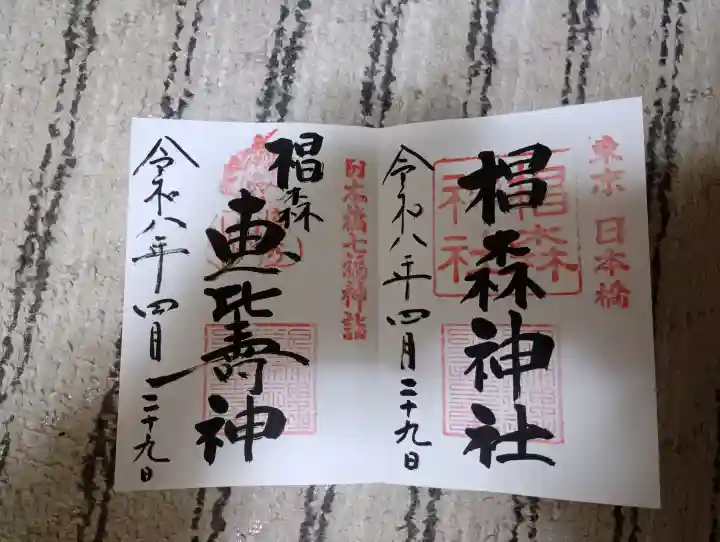 東京 日本橋
椙森神社
椙森神社
令和八年四月二十九日
日本橋七福神詣
椙森
恵比壽神
令和八年四月二十九日